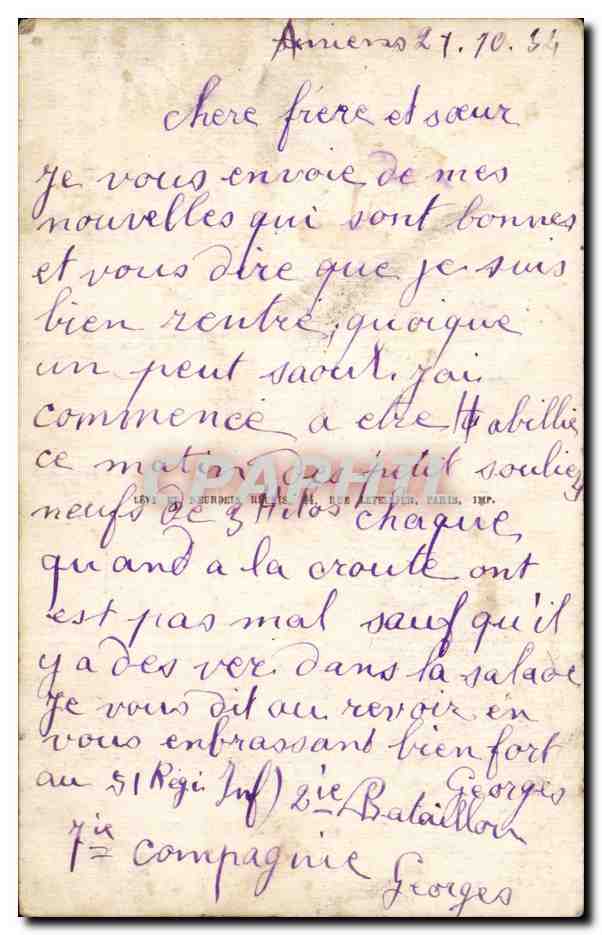 Amiens 21.10.34
chere frere et sœur
Je vous envoie de mes
nouvelles qui sont bonnes
et vous dire que je suis
bien rentré, quoique
un peut saoul. jai
commencé a etre Habillié
ce matin des petit souliez
CPARAMA
LÉVY ET NEURDEIN RÉUNIS, 44, RUE LETELLIER, PARIS, IMP.
neufs de 3 Kilos chaque
quand a la croute ont
est pas mal sauf qu'il
y a des ver dans la salade
Je vous dit au revoir en
vous enbrassant bien fort
au 51 Régi Inf) 2ie Bataillon Georges
7ie compagnie
Georges